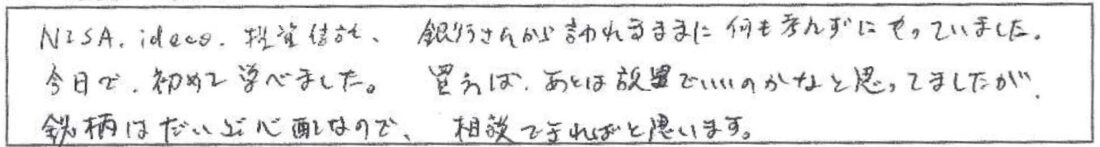 NISA. ideco. 投資信託、 銀行さんから言われるままに何も考えずにやっていました。
今日で、初めて学べました。 買えば、あとは放置でいいのかなと思ってましたが、
銘柄はだいぶ心配なので、 相談できればと思います。